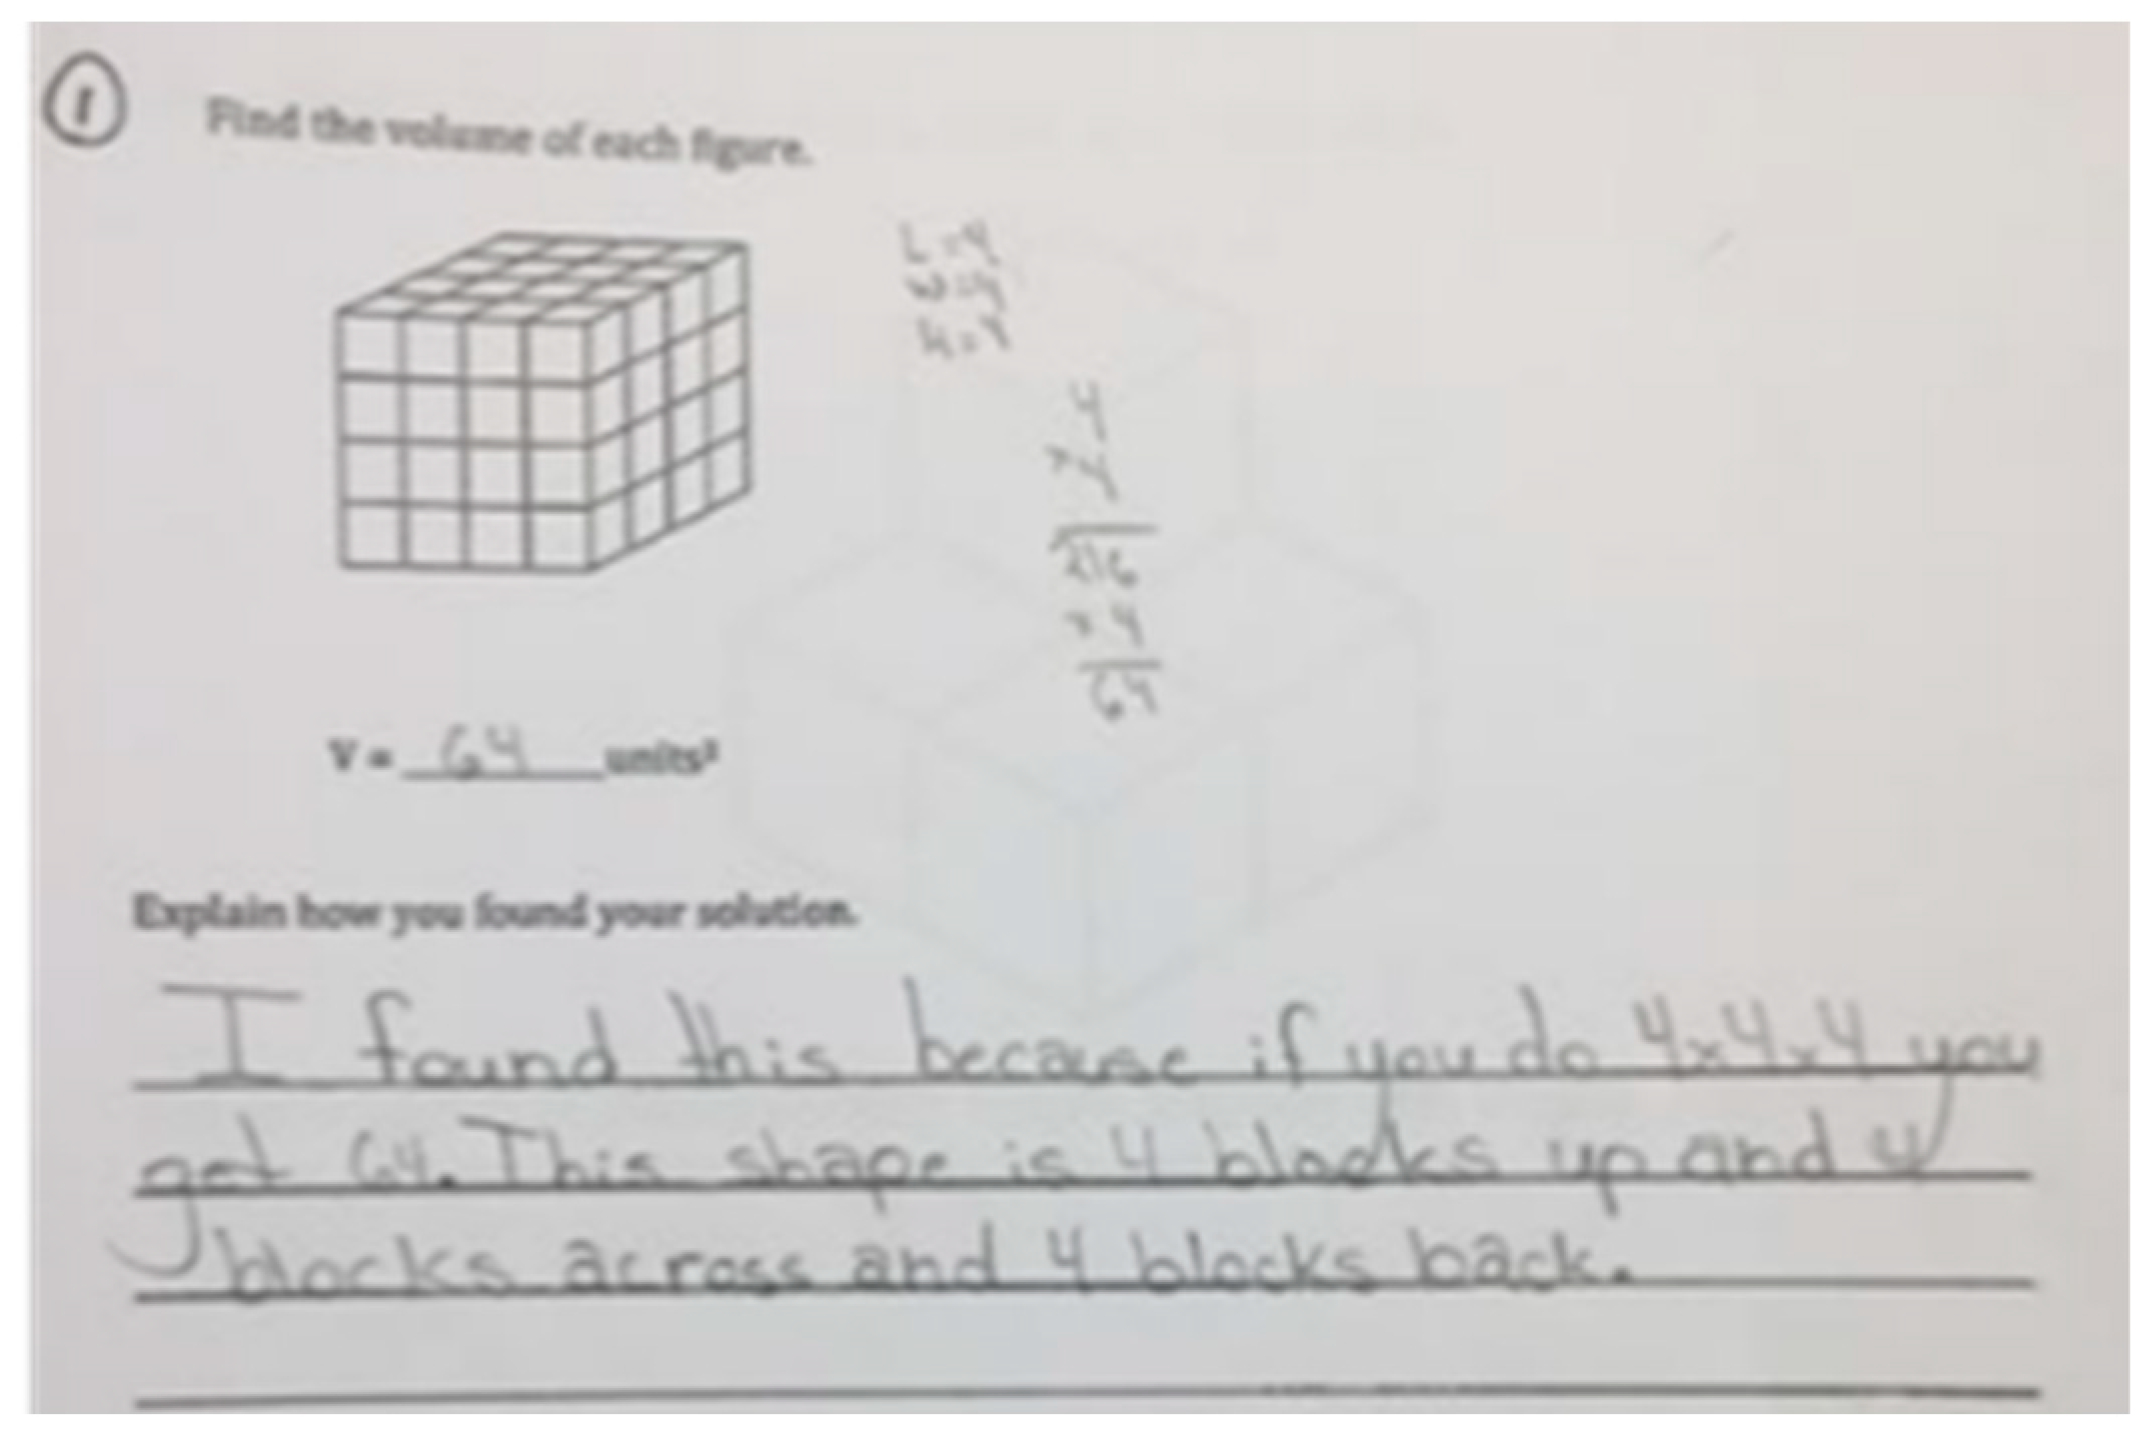 1
Find the volume of each figure.
L=4
W=4
h=4
4
x4
216
x4
64
V = 64 units³
Explain how you found your solution.
I found this because if you do 4x4x4 you
get 64. This shape is 4 blocks up and 4
blocks across and 4 blocks back.